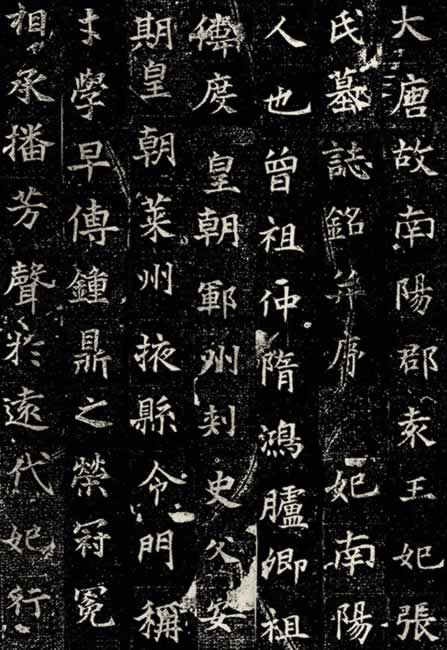 大唐故南陽郡袁王妃張
氏墓誌銘并序 妃南陽
人也曾祖仲隋鴻臚卿祖
偉度 皇朝鄆州刺史父安
期皇朝萊州掖縣令門稱
才學早傳鍾鼎之榮冠冕
相承播芳聲於遠代妃行